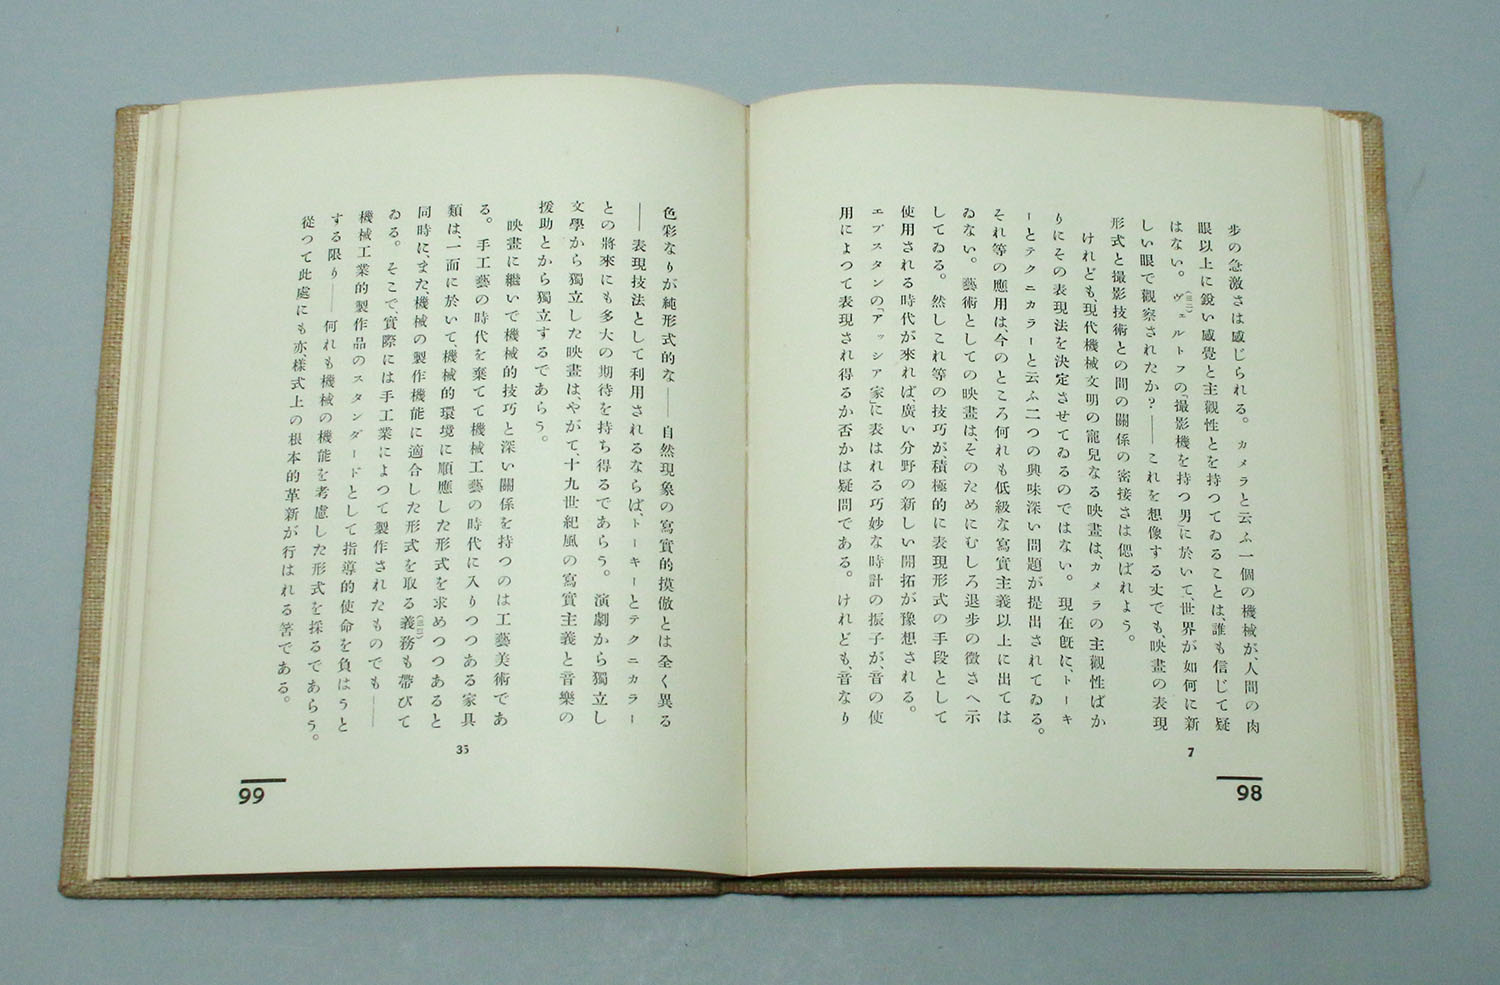 步の急激さは感じられる。カメラと云ふ一個の機械が、人間の肉
眼以上に銳い感覺と主觀性とを持つてゐることは、誰も信じて疑
はない。ヴェルトフの「撮影機を持つ男」に於いて、世界が如何に新
しい眼で觀察されたか？——これを想像する丈でも、映畫の表現
形式と撮影技術との間の關係の密接さは偲ばれよう。
けれども、現代機械文明の寵兒なる映畫は、カメラの主觀性ばか
りにその表現法を決定させてゐるのではない。現在旣に、トーキ
ーとテクニカラーと云ふ二つの興味深い問題が提出されてゐる。
それ等の應用は、今のところ何れも低級な寫實主義以上に出ては
ゐない。藝術としての映畫は、そのためにむしろ退步の徵さへ示
してゐる。然しこれ等の技巧が、積極的に表現形式の手段として
使用される時代が來れば、廣い分野の新しい開拓が豫想される。
エプスタンの「アッシア家」に表はれる巧妙な時計の振子が、音の使
用によつて表現され得るか否かは疑問である。けれども、音なり
7
98
色彩なりが純形式的な——自然現象の寫實的摸倣とは全く異る
——表現技法として利用されるならば、トーキーとテクニカラー
との將來にも多大の期待を持ち得るであらう。演劇から獨立し
文學から獨立した映畫は、やがて、十九世紀風の寫實主義と音樂の
援助とから獨立するであらう。
映畫に繼いで機械的技巧と深い關係を持つのは工藝美術であ
る。手工藝の時代を棄てて機械工藝の時代に入りつつある家具
類は、一面に於いて、機械的環境に順應した形式を求めつつあると
同時に、また、機械の製作機能に適合した形式を取る義務も帶びて
ゐる。そこで、實際には手工業によつて製作されたものでも——
機械工業的製作品のスタンダードとして指導的使命を負はうと
する限り——何れも機械の機能を考慮した形式を採るであらう。
從つて此處にも亦、樣式上の根本的革新が行はれる筈である。
35
99